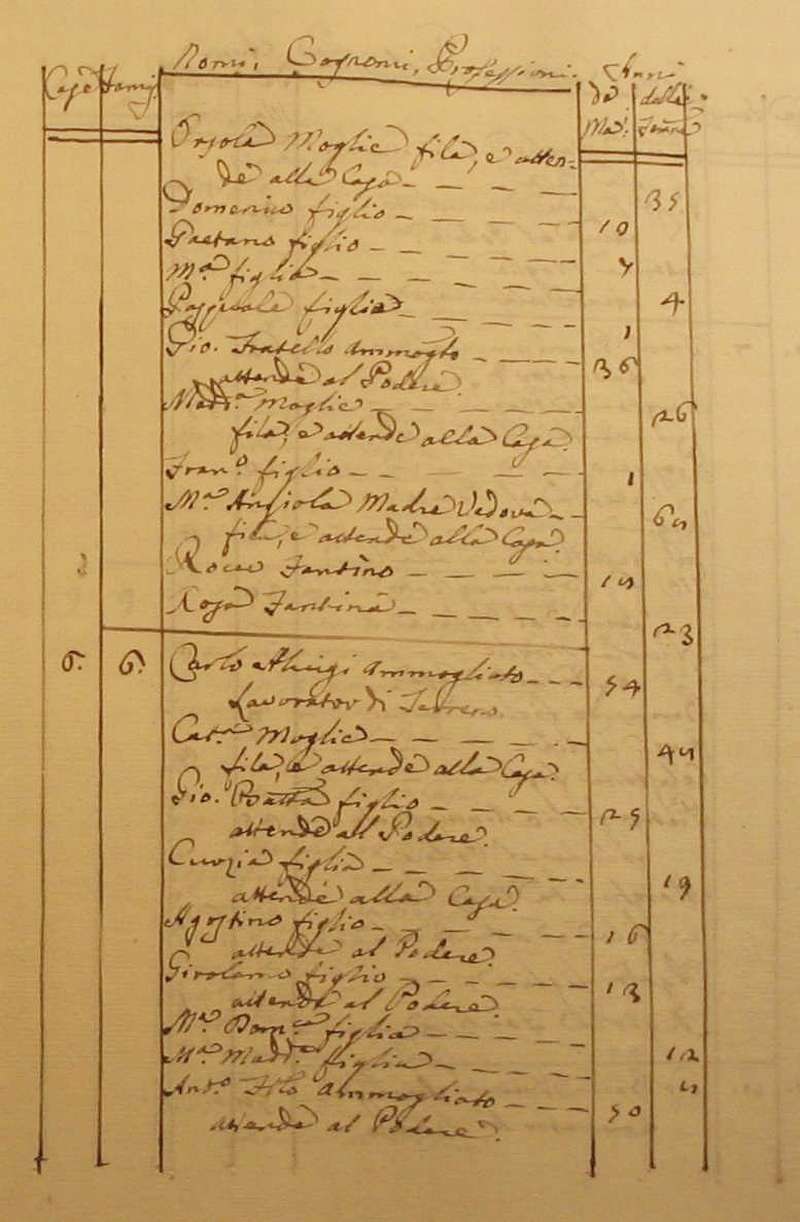 Case Famig. Nomi, Cognomi, Professioni. Anni
de Ma. delle Fem.
Orsola Moglie fila, e atten-
de alla Casa 35
Domenico figlio 10
Gaetano figlio 7
M.a figlia 4
Pasquale figlio 1
Gio. Fratello Ammogto 36
attende al Podere
Madd.a Moglie 26
fila, e attende alla Casa.
Fran.o figlio 1
M.a Angiola Madre Vedova
fila, e attende alla Casa.
Rocco Fantino
Rosa Fantina 23
6. 6. Carlo Aluigi Ammogliato 54
Lavorator di Terreno
Cat.a Moglie
fila, e attende alla Casa.
Gio. Batta figlio 25
attende al Podere.
figlia 19
attende alla Casa.
Agostino figlio 16
attende al Podere.
Girolamo figlio 13
attende al Podere.
M.a Dom.ca figlia 12
M.a Madd.a figlia
Ant.o Ammogliato 50
attende al Podere.